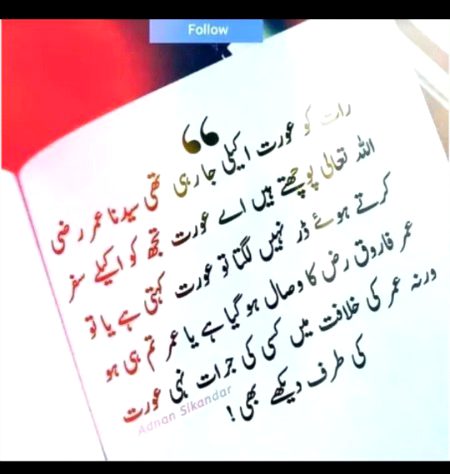 Follow
“
رات کو عورت اکیلی جا رہی تھی سیدنا عمر رضی
اللہ تعالی پوچھتے ہیں اے عورت تجھ کو اکیلے سفر
کرتے ہوئے ڈر نہیں لگتا تو عورت کہتی ہے یا تو
عمر فاروق رض کا وصال ہو گیا ہے یا عمر تم ہی ہو
ورنہ عمر کی خلافت میں کسی کی جرات نہی عورت
کی طرف دیکھے بھی!
Adnan Sikandar